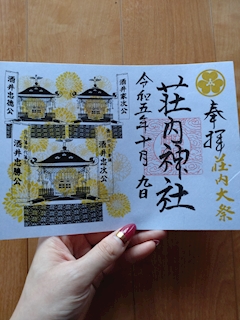 奉拝
荘内大祭
荘内神社
令和五年十月九日
酒井家次公
酒井忠徳公
酒井忠次公
酒井忠勝公